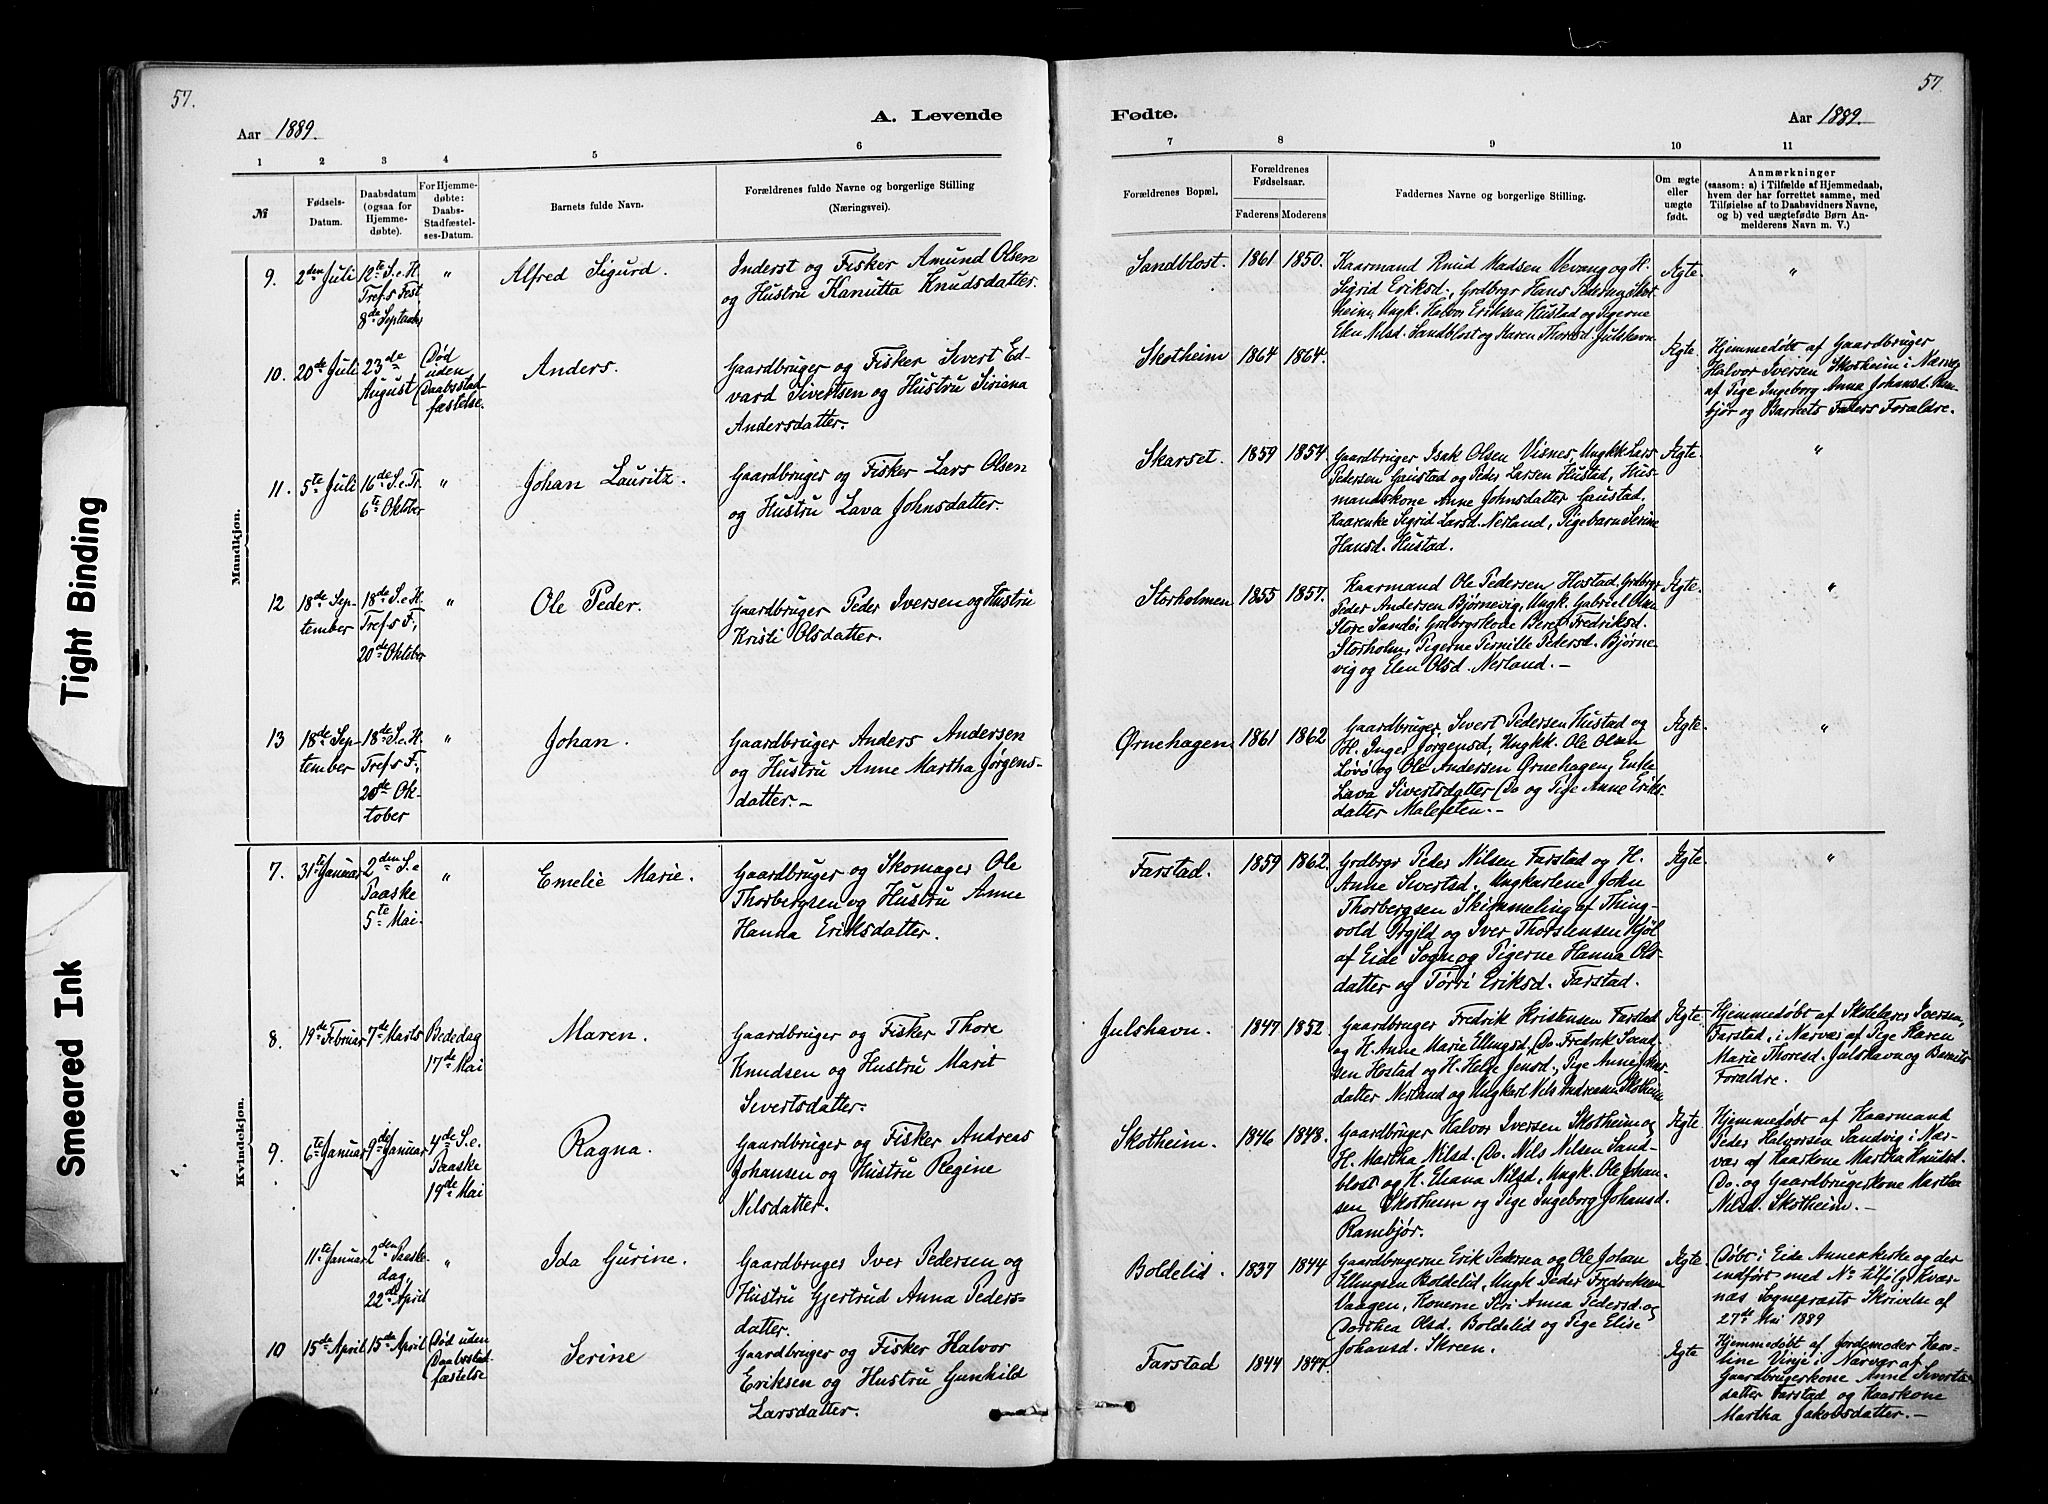 57.
57
A. Levende
Fødte.
Aar 1889.
Aar 1889.
1 2 3 4 5 6
7 8 9 10 11
№
Fødsels-
Datum.
Daabsdatum
(ogsaa for
Hjemme-
døbte).
For Hjemme-
døbte:
Daabs-
Stadfæstel-
ses-Datum.
Barnets fulde Navn.
Forældrenes fulde Navne og borgerlige Stilling
(Næringsvei).
Forældrenes Bopæl.
Forældrenes
Fødselsaar.
Faderens Moderens
Faddernes Navne og borgerlige Stilling.
Om ægte
eller
uægte
født.
Anmærkninger
(saasom: a) i Tilfælde af Hjemmedaab,
hvem der har forrettet samme, med
Tilføielse af to Daabsvidners Navne,
og b) ved uægtefødte Børn An-
melderens Navn m. V.)
Mandkjøn.
9. 2den Juli
12te S. e. H.
Trefs Fest
8de September
"
Alfred Sigurd.
Inderst og Fisker Amund Olsen
og Hustru Kanutta Knudsdatter.
Sandblost. 1861 1850.
Kaarmand Knud Madsen Vevang og H.
Sigrid Eriksd., Grdbrgr Hans Pedersen Skot-
heim, Ungk. Halvor Eriksen Hustad og Pigerne
Elen Nilsd. Sandblost og Maren Thoresd. Julshavn.
Ægte.
"
10. 20de Juli
23de
August
Død
uden
Daabsstad-
fæstelse.
Anders.
Gaardbruger og Fisker Sivert Ed-
vard Sivertsen og Hustru Siriana
Andersdatter.
Skotheim 1864 1864.
Ægte.
Hjemmedøbt af Gaardbruger
Halvor Iversen Skotheim i Nærvær
af Pige Ingeborg Anna Johansd. Ram-
bjør og Barnets Faders Forældre.
11. 5te Juli
16de S. e. Tr.
6te Oktober
"
Johan Lauritz.
Gaardbruger og Fisker Lars Olsen
og Hustru Lava Johnsdatter.
Skarset. 1859 1854
Gaardbruger Isak Olsen Visnes, Ungkk Lars
Pedersen Gaustad og Peder Larsen Hustad, Hus-
mandskone Anne Johnsdatter Gaustad,
Kaarenke Sigrid Larsd. Nerland, Pigebarn Serine
Hansd. Hustad.
Ægte.
"
12 18de Sep-
tember
18de S. e. H.
Trefs F.,
20de Oktober
"
Ole Peder.
Gaardbruger Peder Iversen og Hustru
Kristi Olsdatter.
Storholmen 1855 1857.
Kaarmand Ole Pedersen Hostad, Grdbrgr
Peder Andersen Bjørnevig, Ungk. Gabriel Olsen
Store Sandø, Grdbrgrkone Beret Fredriksd.
Storholm, Pigerne Pernille Pedersd. Bjørne-
vig og Elen Olsd. Nerland. —
Ægte.
"
13 18de Sep-
tember
18de S. e. H.
Trefs F.,
20de Ok-
tober
"
Johan.
Gaardbruger Anders Andersen
og Hustru Anne Martha Jørgens-
datter. —
Ørnehagen 1861 1862
Gaardbruger Sivert Pedersen Hustad og
H. Inger Jørgensd., Ungkk. Ole Olsen
Løvø og Ole Andersen Ørnehagen, Enke
Lava Sivertsdatter Do og Pige Anne Eriks-
datter Malefeten. —
Ægte.
"
Kvindekjøn.
7. 31te Januar
2den S. e.
Paaske
5te Mai.
"
Emelie Marie.
Gaardbruger og Skomager Ole
Thorbergsen og Hustru Anne
Hanna Eriksdatter.
Farstad. 1859 1862.
Grdbrgr Peder Nilsen Farstad og H.
Anne Sivertsd. Ungkarlene John
Thorbergsen Skimmeling af Thing-
vold Prgjld og Iver Thorstensen Kjøl
af Eide Sogn og Pigerne Hanna Ols-
datter og Torri Eriksd. Farstad.
Ægte
"
8. 19de Februar
7de Marts
Bededag
17de Mai
Maren.
Gaardbruger og Fisker Thore
Knudsen og Hustru Marit
Sivertsdatter.
Julshavn. 1847 1852.
Gaardbruger Fredrik Kristensen Farstad
og H. Anne Marie Ellingsd., Do. Fredrik Svend-
sen Hostad og H. Helge Jensd., Pige Anne Johns-
datter Nerland og Ungkarl Nils Andreasen Skotheim
Ægte.
Hjemmedøbt af Skolelærer Iversen,
Farstad, i Nærvær af Pige Karen
Marie Thoresd. Julshavn og Barnets
Forældre.
9. 6te Januar
9de Januar
4de S. e.
Paaske
19de Mai
Ragna.
Gaardbruger og Fisker Andreas
Johansen og Hustru Regine
Nilsdatter.
Skotheim. 1846 1848.
Gaardbruger Halvor Iversen Skotheim og
H. Martha Nilsd. Do. Nils Nilsen Sand-
blost og H. Eliana Nilsd., Ungk. Ole Johan-
sen Skotheim og Pige Ingeborg Johansd.
Rambjør.
Ægte
Hjemmedøbt af Kaarmand
Peder Halvorsen Sandvig i Nær-
vær af Kaarkone Martha Knutsd.
Do. og Gaardbrugerkone Martha
Nilsd. Skotheim. —
11te Januar
2den Paaske-
dag,
22de April
"
Ida Gurine.
Gaardbruger Iver Pedersen og
Hustru Gjertrud Anna Peders-
datter.
Boldelid. 1837 1844
Gaardbrugerne Erik Pedersen og Ole Johan
Ellingsen Boldelid, Ungk Peder Fredriksen
Vaagen, Konerne Siri Anna Pedersd. og
Dorthea Olsd. Boldelid og Pige Elise
Johansd. Skreen.
Ægte.
Døbt i Eide Annexkirke og der
indført med No tilfølge Kvær-
næs Sogneprests Skrivelse af
27de Mai 1889
10 15de April
15de April
Død uden
Daabsstad-
fæstelse
Serine
Gaardbruger og Fisker Halvor
Eriksen og Hustru Gunhild
Larsdatter.
Farstad 1844 1847.
Ægte
Hjemmedøbt af Jordemoder Karo-
line Vinje i Nærvær af
Gaardbrugerkone Anne Siverts-
datter Farstad og Kaarkone
Martha Jakobsdatter. —
Tight Binding
Smeared Ink